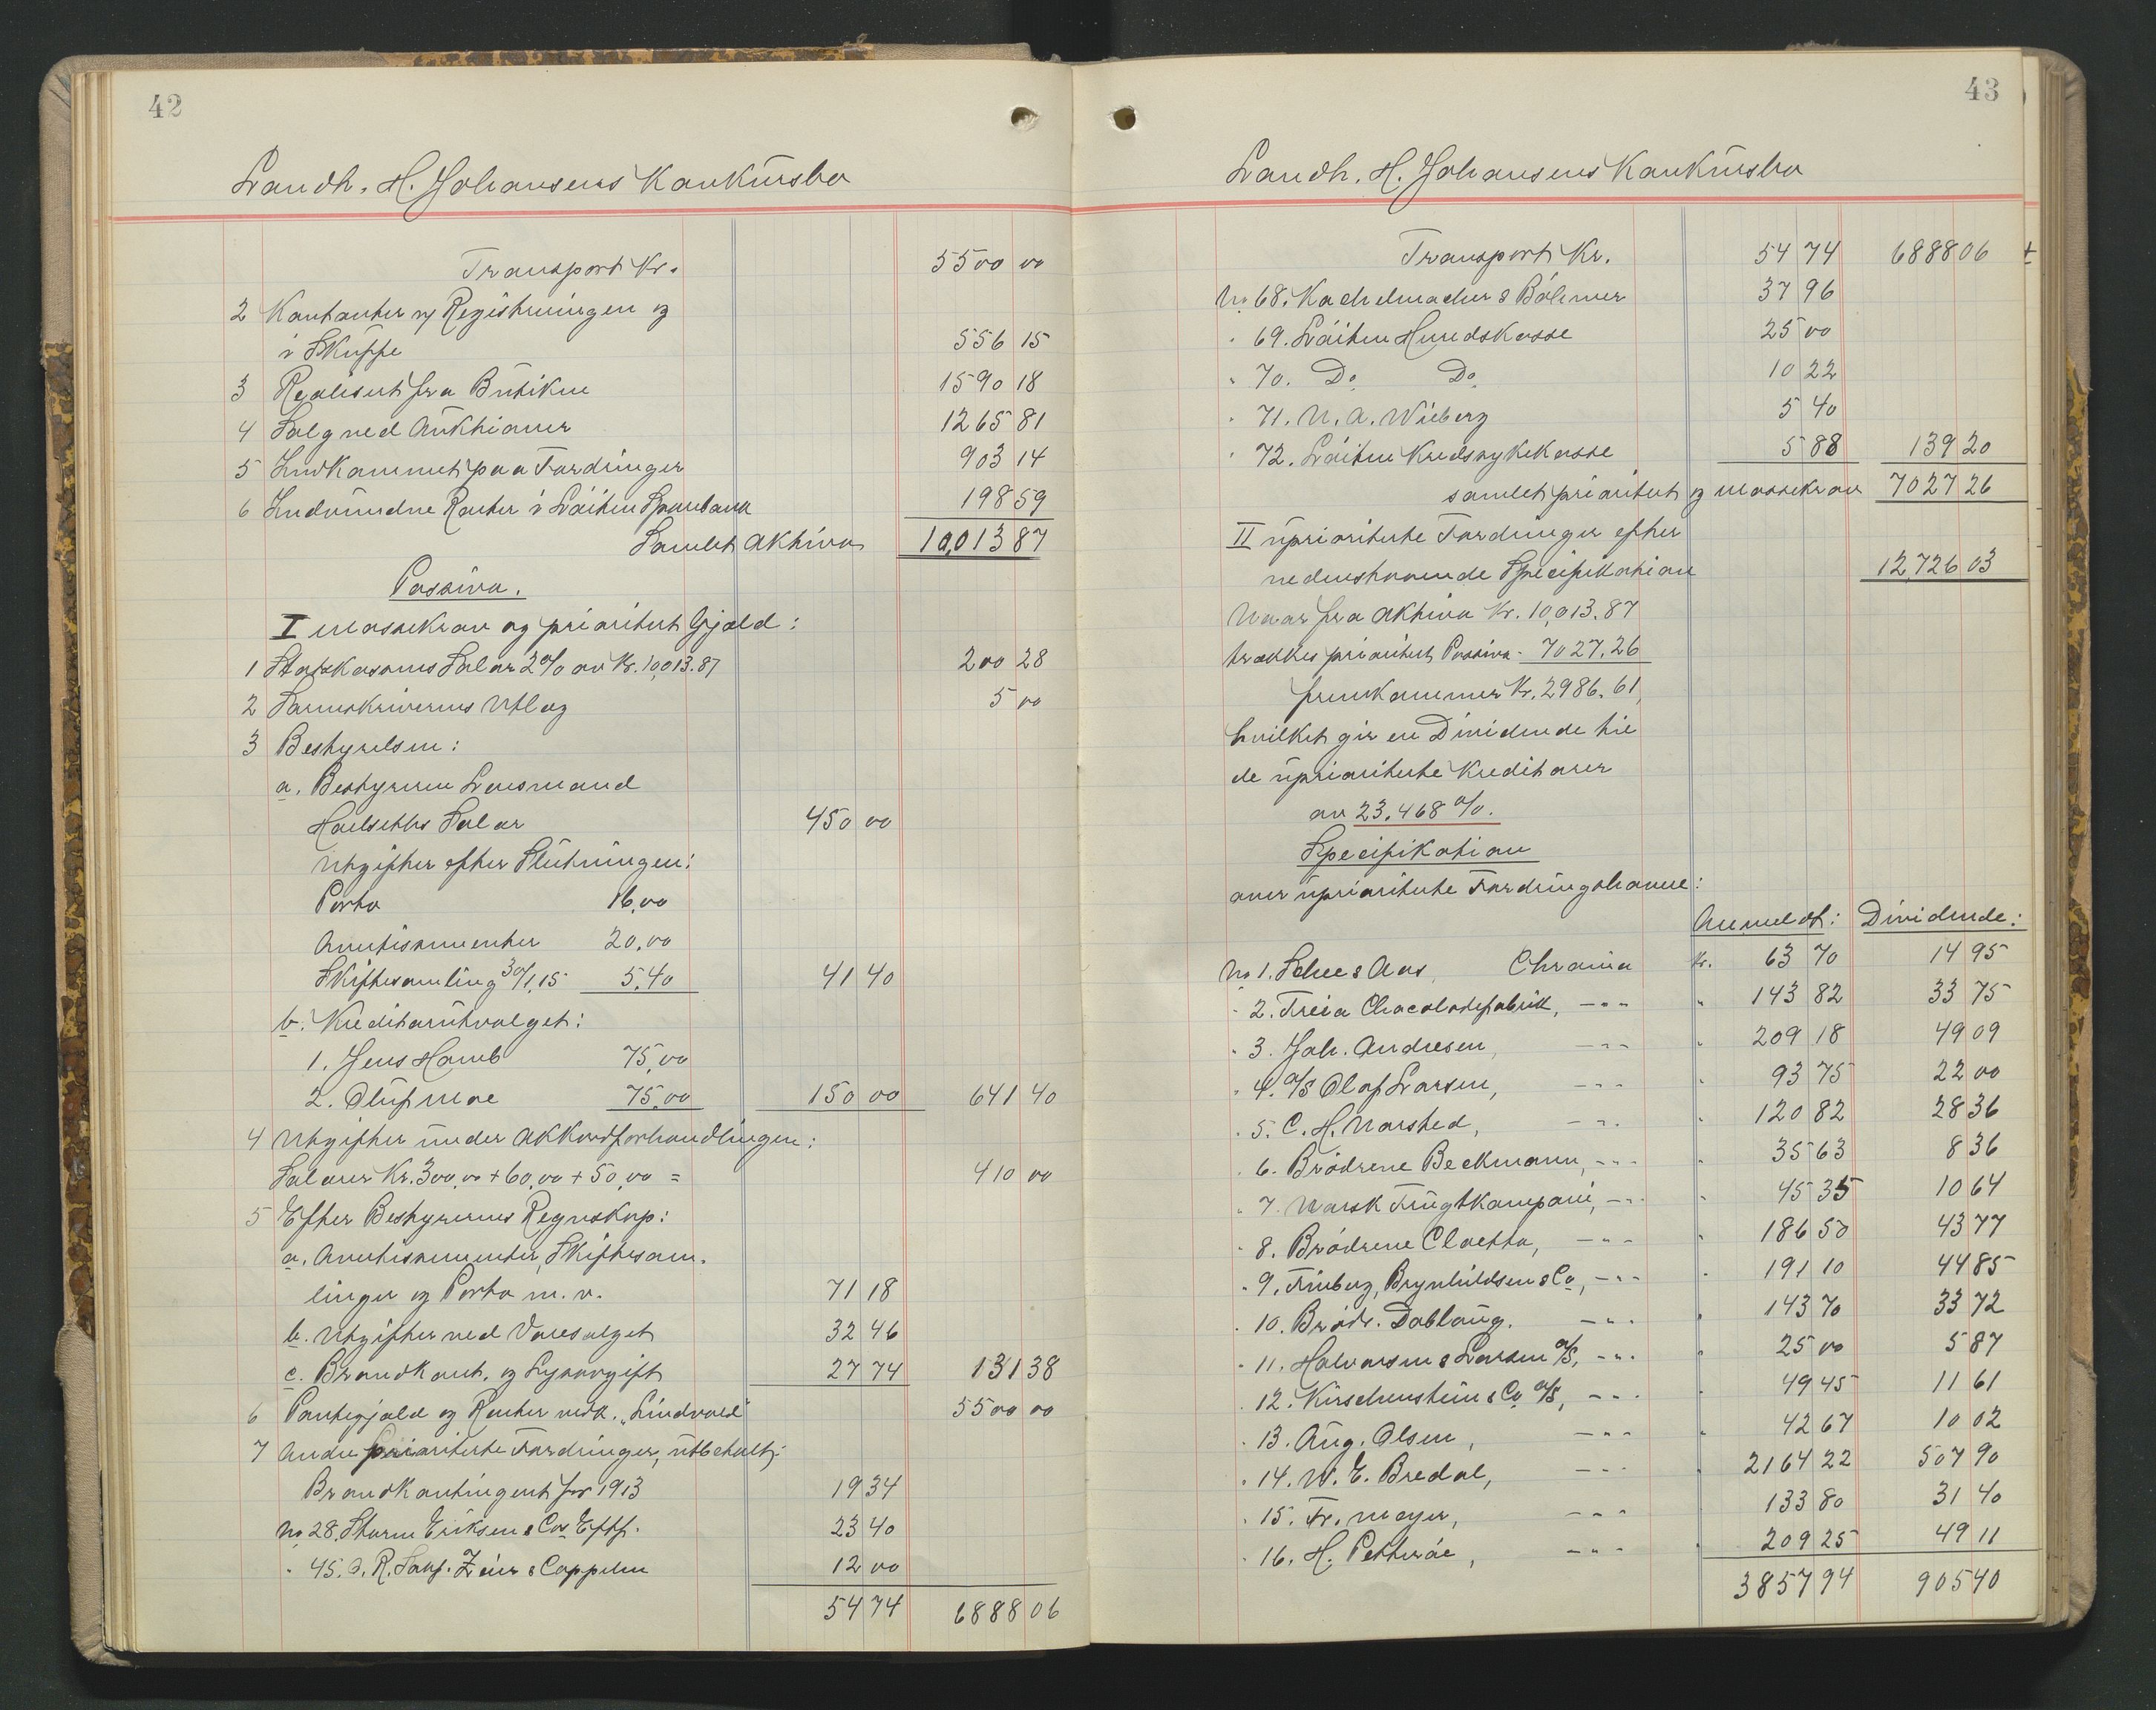 42
Landh. H. Johansens Konkursbo
Transport Kr. 5500 00
2 Kontanter v/ Registreringen og
i Skuffe 556 15
3 Realisert fra Butiken 1590 18
4 Salg ved Auktioner 1265 81
5 Indkommet paa Fordringer 903 14
6 Indvundne Renter i Løiten Sparebank 198 59
Samlet Aktiva 10,013 87
Passiva.
I Massekrav og prioritert Gjæld:
1 Statskassens Salær 2% av Kr. 10,013.87 200 28
2 Sorenskriverens Utlæg 5 00
3 Bestyrelsen:
a. Bestyreren Lensmand
Hoelseths Salær 450 00
Utgifter efter Slutningen:
Porto 16,00
Avertissementer 20,00
Skiftesamling 30/1,15 5,40 41 40
b. Kreditorutvalget:
1. Jens Homb 75,00
2. Oluf Moe 75,00 150 00 641 40
4 Utgifter under Akkordforhandlingen:
Salærer Kr. 300,00 + 60,00 + 50,00 = 410 00
5 Efter Bestyrerens Regnskap:
a. Avertissementer, Skiftesam-
linger og Porto m.v. 71 18
b. Utgifter ved Varesalget 32 46
c. Brandkont. og Lysavgift 27 74 131 38
6 Pantegjæld og Renter vedk. "Lindvold" 5500 00
7 Andre prioriterte Fordringer, utbetalt:
Brandkontingent for 1913 19 34
No 28. Sturm Eriksen & Cos Eftf. 23 40
" 45. O. R. Sakf. Zeier & Cappelen 12 00
54 74 6888 06
43
Landh. H. Johansens Konkursbo
Transport Kr. 54 74 6888 06
No 68. Kachelmacher & Böhmer 37 96
" 69. Løiten Herredskasse 25 00
" 70. Do Do 10 22
" 71. N. A. Wiberg 5 40
" 72. Løiten Kredssykekasse 5 88 139 20
samlet prioritert og massekrav 7027 26
II Uprioriterte Fordringer efter
nedenstaaende Specifikation 12,726 03
Naar fra Aktiva Kr. 10,013.87
trækkes prioritert Passiva - 7027.26
fremkommer Kr. 2986.61,
hvilket gir en Dividende til
de uprioriterte Kreditorer
av 23,468 %.
Specifikation
over uprioriterte Fordringshavere:
Anmeldt: Dividende:
No 1. Schee & Aas, Chrania Kr. 63 70 14 95
" 2. Freia Chocoladefabrik, -"- " 143 82 33 75
" 3. Joh. Andresen, -"- " 209 18 49 09
" 4. A/S Olaf Larsen, -"- " 93 75 22 00
" 5. C. H. Narsted, -"- " 120 82 28 36
" 6. Brødrene Beckmann, -"- " 35 63 8 36
" 7. Norsk Frugtkompani, -"- " 45 35 10 64
" 8. Brødrene Cloetta, -"- " 186 50 43 77
" 9. Friberg, Brynhildsen & Co, -"- " 191 10 44 85
" 10. Brødr. Dobloug. -"- " 143 70 33 72
" 11. Halvorsen & Larsen A/S, -"- " 25 00 5 87
" 12. Kirschenstein & Co A/S, -"- " 49 45 11 61
" 13. Aug. Olsen, -"- " 42 67 10 02
" 14. W. E. Bredal, -"- " 2164 22 507 90
" 15. Fr. Meyer, -"- " 133 80 31 40
" 16. H. Petterøe, -"- " 209 25 49 11
3857 94 905 40